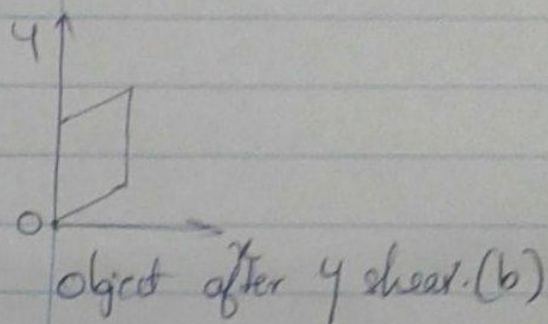 y
O
x
object after y shear. (b)